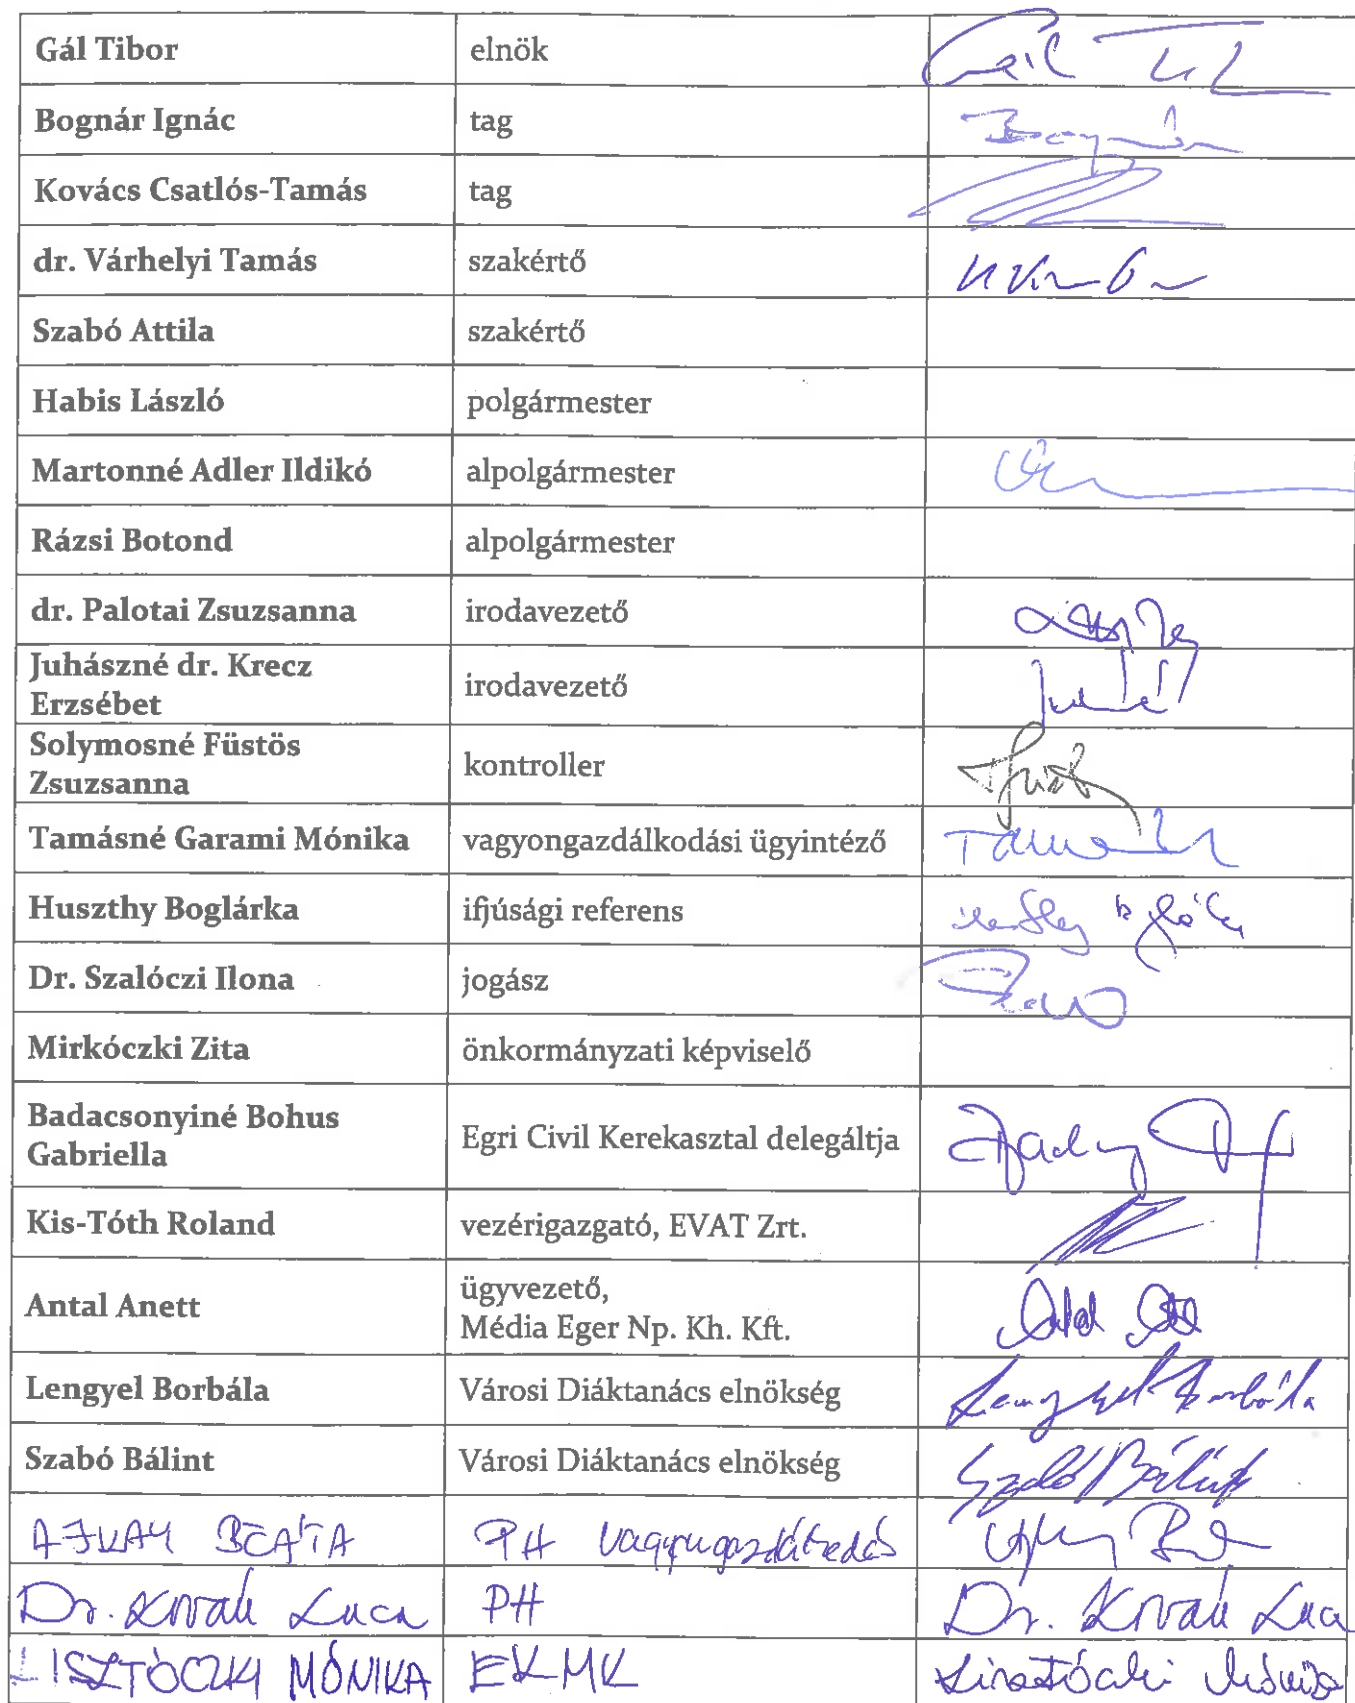 Gál Tibor elnök Gál T
Bognár Ignác tag Bognár
Kovács Csatlós-Tamás tag
dr. Várhelyi Tamás szakértő
Szabó Attila szakértő
Habis László polgármester
Martonné Adler Ildikó alpolgármester
Rázsi Botond alpolgármester
dr. Palotai Zsuzsanna irodavezető
Juhászné dr. Krecz
Erzsébet irodavezető
Solymosné Füstös
Zsuzsanna kontroller
Tamásné Garami Mónika vagyongazdálkodási ügyintéző
Huszthy Boglárka ifjúsági referens
Dr. Szalóczi Ilona jogász
Mirkóczki Zita önkormányzati képviselő
Badacsonyiné Bohus
Gabriella Egri Civil Kerekasztal delegáltja
Kis-Tóth Roland vezérigazgató, EVAT Zrt.
Antal Anett ügyvezető,
Média Eger Np. Kh. Kft.
Lengyel Borbála Városi Diáktanács elnökség Lengyel Borbála
Szabó Bálint Városi Diáktanács elnökség Szabó Bálint
AJKAY BEÁTA PH vagyongazdálkodás
Dr. Kovács Luca PH Dr. Kovács Luca
LISZTÓCZKI MÓNIKA EKMK Lisztóczki Mónika